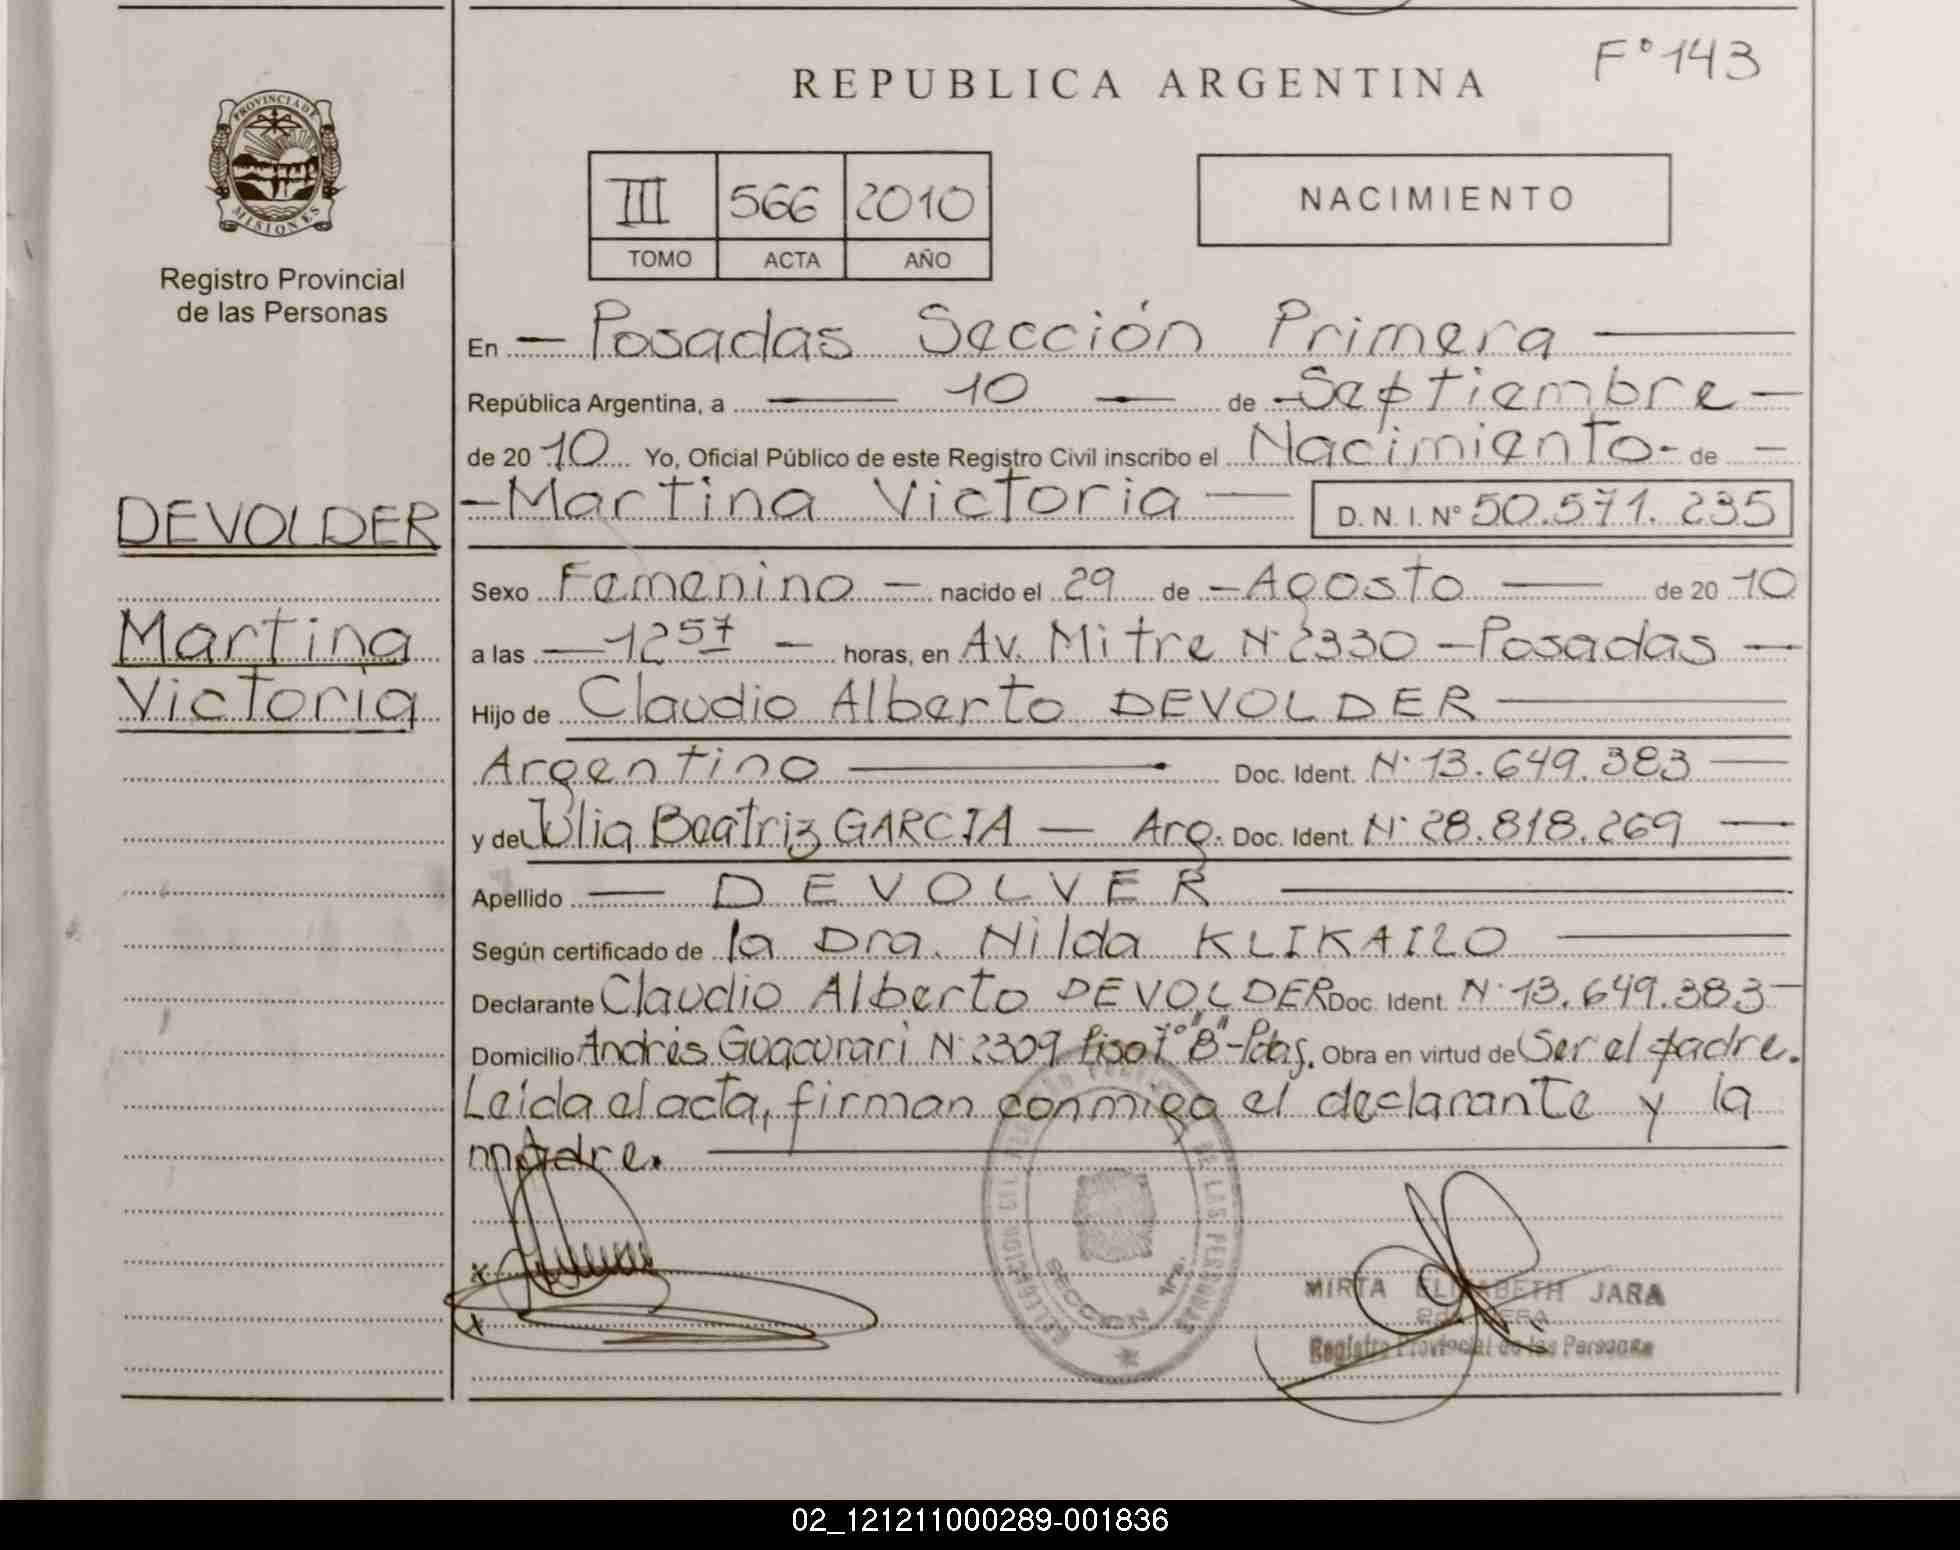 F° 143
REPUBLICA ARGENTINA
PROVINCIA DE
MISIONES
Registro Provincial
de las Personas
III 566 2010
TOMO ACTA AÑO
NACIMIENTO
En - Posadas Sección Primera
República Argentina, a 10 de - Septiembre -
de 20 10 Yo, Oficial Público de este Registro Civil inscribo el Nacimiento - de -
- Martina Victoria - D.N.I. N° 50.571.235
DEVOLDER
Martina
Victoria
Sexo Femenino - nacido el 29 de - Agosto - de 20 10
a las - 12 57 - horas, en Av. Mitre N° 2330 - Posadas -
Hijo de Claudio Alberto DEVOLDER
Argentino Doc. Ident. N° 13.649.383
y de Julia Beatriz GARCIA - Arg. Doc. Ident. N° 28.818.269
Apellido - DEVOLVER
Según certificado de la Dra. Nilda KLIKAILO
Declarante Claudio Alberto DEVOLDER Doc. Ident. N° 13.649.383 -
Domicilio Andrés Guacurari N° 2309 Piso 7° "B" - Pdas. Obra en virtud de Ser el padre.
Leída el acta, firman conmigo el declarante y la
madre.
DE LAS PERSONAS
SECCION 1ra.
MIRTA ELIZABETH JARA
Registro Provincial de las Personas
02_121211000289-001836